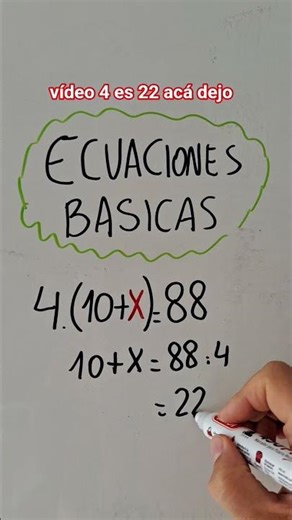 vídeo 4 es 22 acá dejo
ECUACIONES
BASICAS
4.(10+X)=88
10+X=88:4
=22